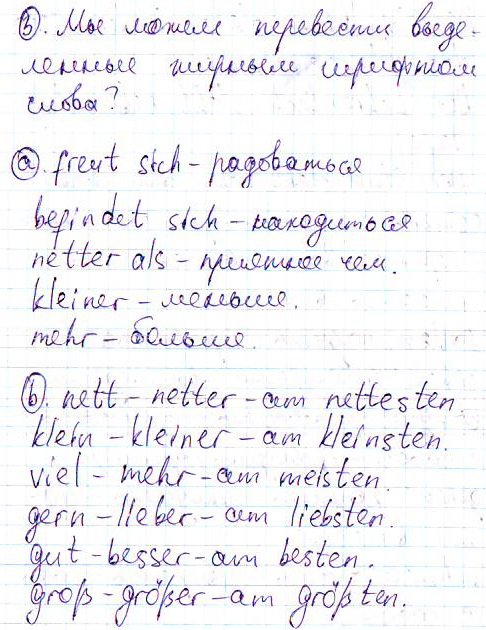 ③. Мы можем перевести выде-
ленные жирным шрифтом
слова?
ⓐ. freut sich – радоваться
befindet sich – находиться
netter als – приятнее чем.
kleiner – меньше.
mehr – больше.
ⓑ. nett – netter – am nettesten.
klein – kleiner – am kleinsten.
viel – mehr – am meisten.
gern – lieber – am liebsten.
gut – besser – am besten.
groß – größer – am größten.